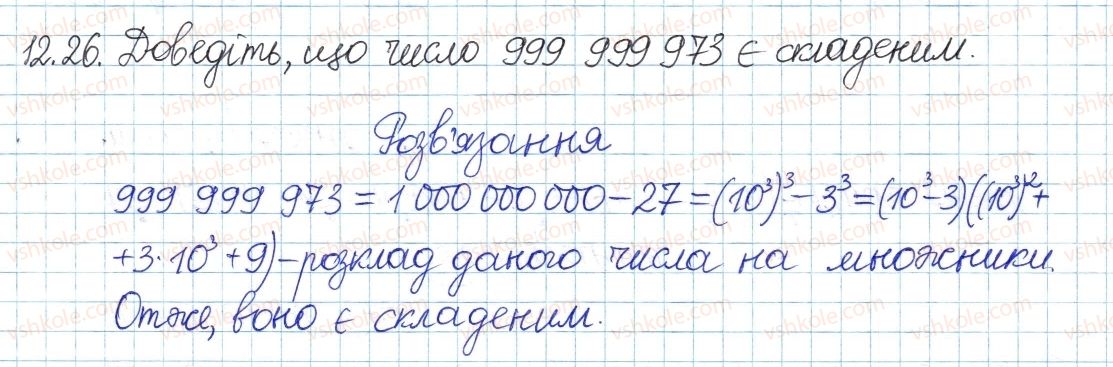 12.26. Доведіть, що число 999 999 973 є складеним.
Розв'язання
999 999 973 = 1 000 000 000 – 27 = (10³)³ – 3³ = (10³ – 3)((10³)² +
+ 3·10³ + 9) – розклад даного числа на множники.
Отже, воно є складеним.